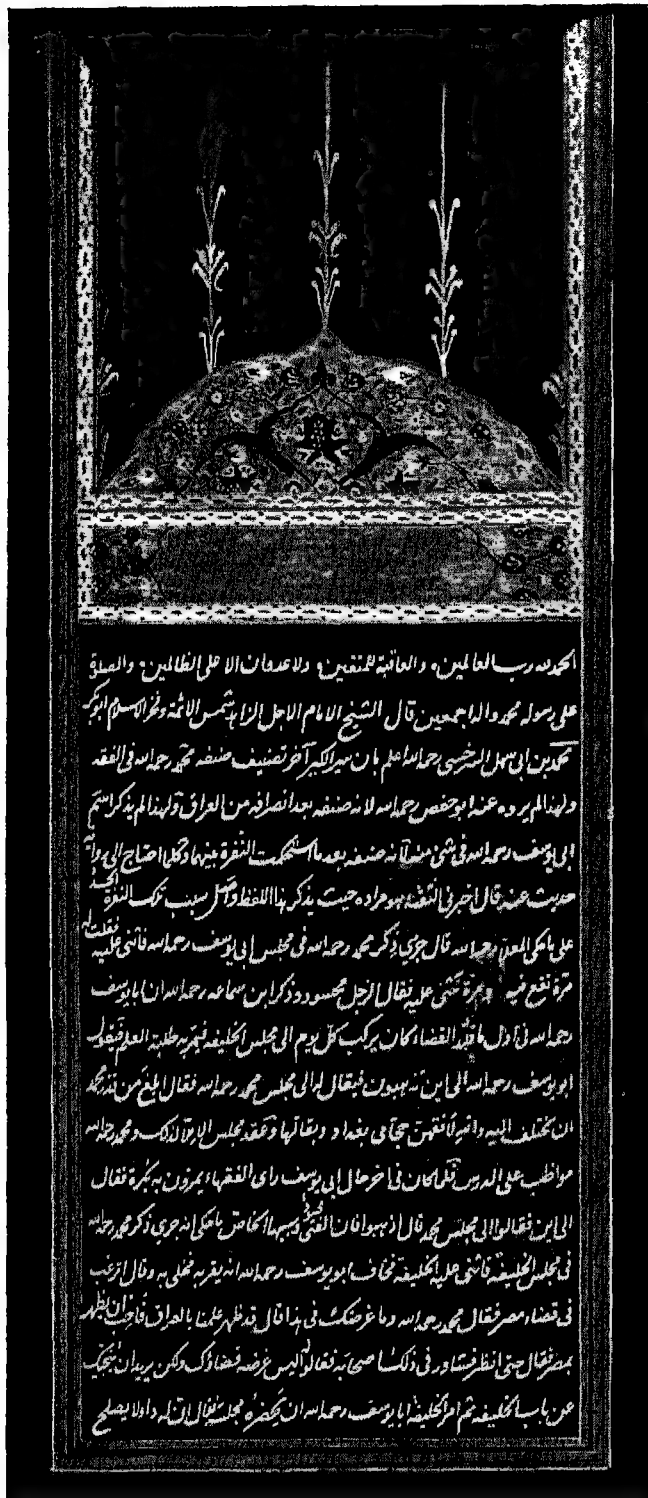 الحمد لله رب العالمين، والعاقبة للمتقين، ولا عدوان الا على الظالمين، والصلوة
على رسوله محمد واله اجمعين قال الشيخ الامام الاجل الزاهد شمس الائمة وفخر الاسلام ابو بكر
محمد بن ابى سهل السرخسى رحمه الله اعلم بان سير الكبير آخر تصنيف صنفه محمد رحمه الله فى الفقه
ولهذا لم يروه عنه ابو حفص رحمه الله لانه صنفه بعد انصرافه من العراق ولهذا لم يذكر اسم
ابى يوسف رحمه الله فى شئ منه لانه صنفه بعد ما استحكمت النفرة بينهما وكلما احتاج الى رواية
حديث عنه قال اخبرنى الثقة وهو مراده حيث يذكر هذا اللفظ واصل سبب تلك النفرة الحسد
على ما حكى المعلى رحمه الله قال جرى ذكر محمد رحمه الله فى مجلس ابى يوسف رحمه الله فاثنى عليه فقلت له
مرة تقع فيه ومرة تثنى عليه فقال الرجل محسود وذكر ابن سماعه رحمه الله ان ابا يوسف
رحمه الله فى اول ما قلد القضاء كان يركب كل يوم الى مجلس الخليفه فيمر به طلبة العلم فيقول
ابو يوسف رحمه الله الى اين تذهبون فيقال له الى مجلس محمد رحمه الله فقال ابلغ من قدر محمد
ان يختلف اليه والله لافقهن حجامى بغداد وبقاليها وعقد مجلس الاملاء لذلك ومحمد رحمه الله
مواظب على الدرس فلما كان فى اخر حال ابى يوسف راى الفقهاء يمرون به بكرة فقال
الى اين فقالوا الى مجلس محمد قال اذهبوا فان الفتى محسود وسببها الخاص ما حكى انه جرى ذكر محمد رحمه الله
فى مجلس الخليفة فاثنى عليه الخليفة فخاف ابو يوسف رحمه الله انه يقربه فخلى به وقال اترغب
فى قضاء مصر فقال محمد رحمه الله وما غرضك فى هذا قال قد ظهر علمنا بالعراق فاحب ان يظهر
بمصر فقال حتى انظر فشاور فى ذلك اصحابه فقالوا له ليس غرضه قضاؤك ولكن يريد ان ينحيك
عن باب الخليفه ثم امر الخليفة ابا يوسف رحمه الله ان يحضره مجلسه فقال ان به داء لا يصلح